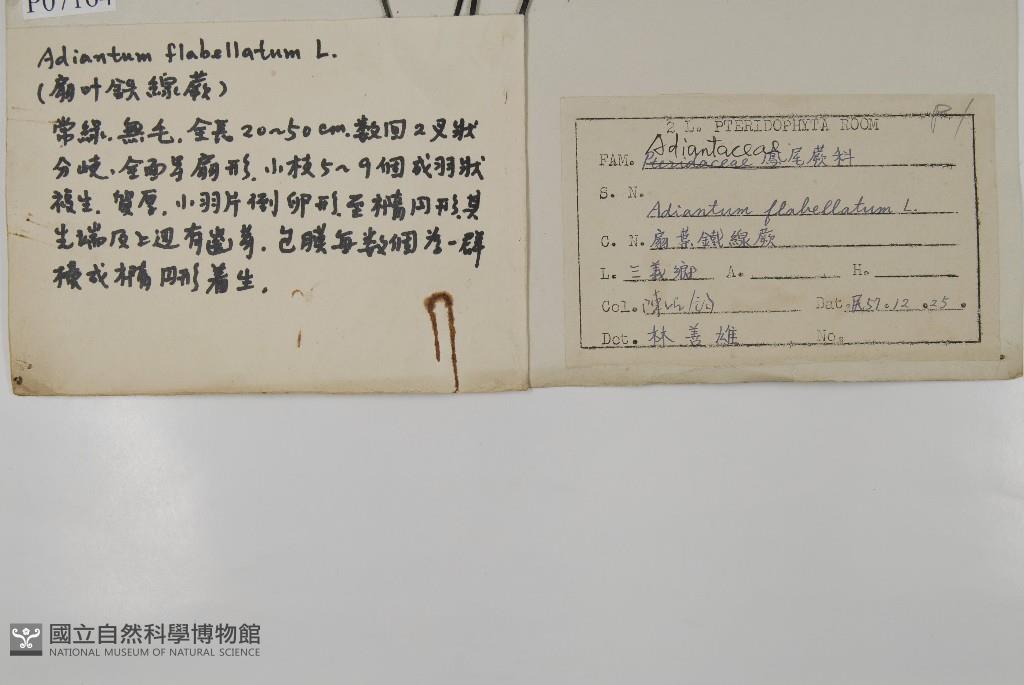 P07164
Adiantum flabellatum L.
(扇叶鉄線蕨)
常綠.無毛.全長20~50cm.数回2叉狀
分岐.全面呈扇形.小枝5~9個成羽狀
複生.質厚.小羽片倒卵形至橢円形其
先端及上邊有齒芽.包膜每数個為一群
橢円形着生.
P 1
2 L. PTERIDOPHYTA ROOM
Adiantaceae
FAM. Pteridaceae 鳳尾蕨科
S. N.
Adiantum flabellatum L.
C. N. 扇葉鐵線蕨
L. 三義鄉 A. H.
Col. 陳 Dat. 民57.12.25.
Det. 林善雄 No.
國立自然科學博物館
NATIONAL MUSEUM OF NATURAL SCIENCE